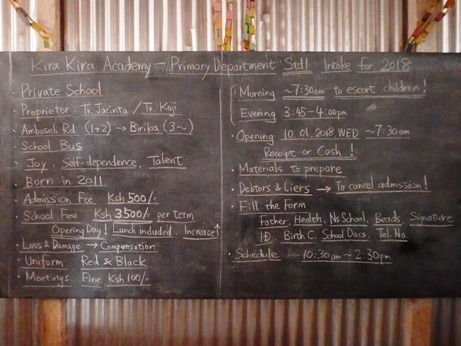 Kira Kira Academy – Primary Department Std1 Intake for 2018
· Private School
· Proprietor Tr. Jacinta / Tr. Koji
· Amboseli Rd (1+2) → Birika (3~)
· School Bus
· Joy, Self-dependence, Talent
· Born in 2011
· Admission Fee Ksh 500/-
· School Fee Ksh 3500/- per term
Opening Day! Lunch included. Increase↑
· Loss & Damage → Compensation
· Uniform Red & Black
· Meetings Fine Ksh 100/-
Morning ~7:30am to escort children!
Evening 3:45-4:00pm
· Opening 10.01.2018 WED ~7:30am
Receipt or Cash!
· Materials to prepare
· Debtors & Liers → To cancel admission!
· Fill the Form
Father, Health, N/School, Beads, Signature
ID. Birth C. School Docs. Tel. No.
· Schedule 10:30am ~ 2:30pm